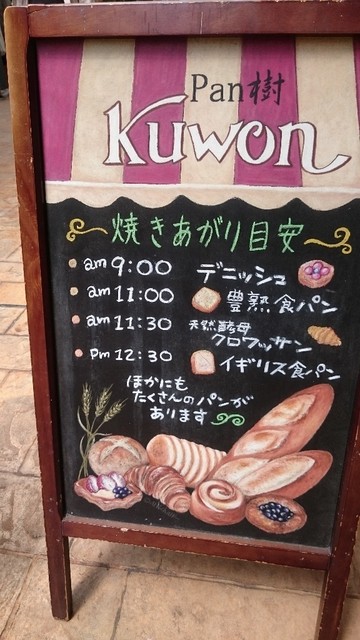 Pan樹
Kuwon
焼きあがり目安
am 9:00 デニッシュ
am 11:00 豊熟食パン
am 11:30 天然酵母クロワッサン
pm 12:30 イギリス食パン
ほかにも
たくさんのパンが
あります